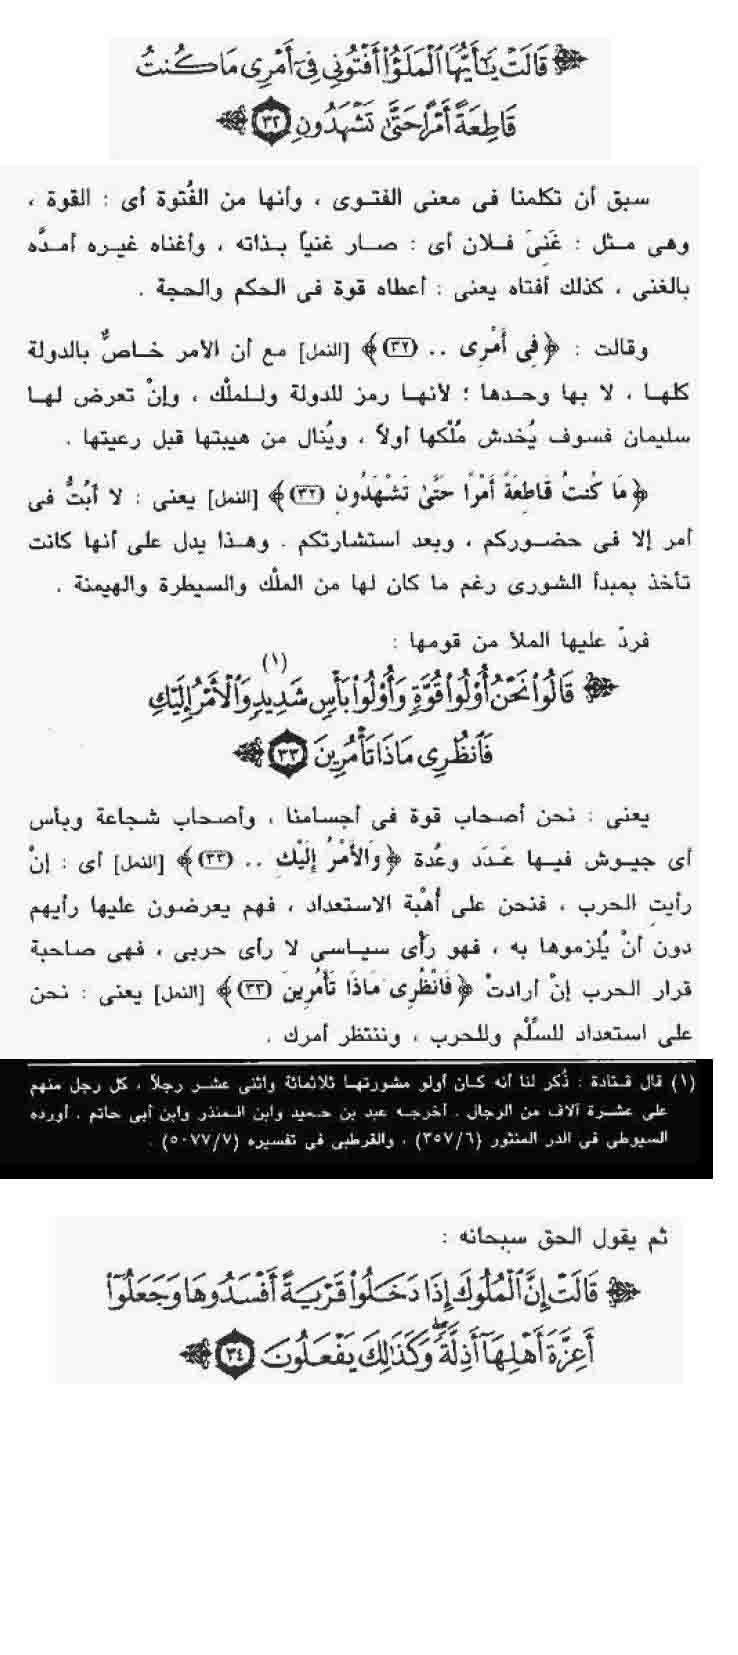 ﴿ قَالَتْ يَٰٓأَيُّهَا ٱلْمَلَؤُا۟ أَفْتُونِى فِىٓ أَمْرِى مَا كُنتُ
قَاطِعَةً أَمْرًا حَتَّىٰ تَشْهَدُونِ ٣٢ ﴾
سبق أن تكلمنا فى معنى الفتوى ، وأنها من الفُتوة أى : القوة ،
وهى مثل : غَنِىَ فلان أى : صار غنياً بذاته ، وأغناه غيره أمدَّه
بالغنى ، كذلك أفتاه يعنى : أعطاه قوة فى الحكم والحجة .
وقالت : ﴿ فِى أَمْرِى .. (٣٢) ﴾ [النمل] مع أن الأمر خاصٌّ بالدولة
كلها ، لا بها وحدها ؛ لأنها رمز للدولة وللملْك ، وإنْ تعرض لها
سليمان فسوف يُخدش مُلْكها أولاً ، ويُنال من هيبتها قبل رعيتها .
﴿ مَا كُنتُ قَاطِعَةً أَمْرًا حَتَّىٰ تَشْهَدُونِ (٣٢) ﴾ [النمل] يعنى : لا أبُتُّ فى
أمر إلا فى حضوركم ، وبعد استشارتكم . وهذا يدل على أنها كانت
تأخذ بمبدأ الشورى رغم ما كان لها من الملْك والسيطرة والهيمنة .
فردّ عليها الملأ من قومها :
﴿ قَالُوا۟ نَحْنُ أُو۟لُوا۟ قُوَّةٍ وَأُو۟لُوا۟ بَأْسٍ (١) شَدِيدٍ وَٱلْأَمْرُ إِلَيْكِ
فَٱنظُرِى مَاذَا تَأْمُرِينَ ٣٣ ﴾
يعنى : نحن أصحاب قوة فى أجسامنا ، وأصحاب شجاعة وبأس
أى جيوش فيها عَدَد وعُدة ﴿ وَالأَمْرُ إِلَيْكِ .. (٣٣) ﴾ [النمل] أى : إنْ
رأيتِ الحرب ، فنحن على أُهْبة الاستعداد ، فهم يعرضون عليها رأيهم
دون أنْ يُلزموها به ، فهو رأْى سياسى لا رأى حربى ، فهى صاحبة
قرار الحرب إنْ أرادتْ ﴿ فَانْظُرِى مَاذَا تَأْمُرِينَ (٣٣) ﴾ [النمل] يعنى : نحن
على استعداد للسِّلْم وللحرب ، وننتظر أمرك .
(١) قال قتادة : ذُكر لنا أنه كان أولو مشورتها ثلاثمائة واثنى عشر رجلاً ، كل رجل منهم
على عشرة آلاف من الرجال . أخرجه عبد بن حميد وابن المنذر وابن أبى حاتم . أورده
السيوطى فى الدر المنثور (٣٥٧/٦) ، والقرطبى فى تفسيره (٥٠٧٧/٧) .
ثم يقول الحق سبحانه :
﴿ قَالَتْ إِنَّ ٱلْمُلُوكَ إِذَا دَخَلُوا۟ قَرْيَةً أَفْسَدُوهَا وَجَعَلُوٓا۟
أَعِزَّةَ أَهْلِهَآ أَذِلَّةً ۖ وَكَذَٰلِكَ يَفْعَلُونَ ٣٤ ﴾